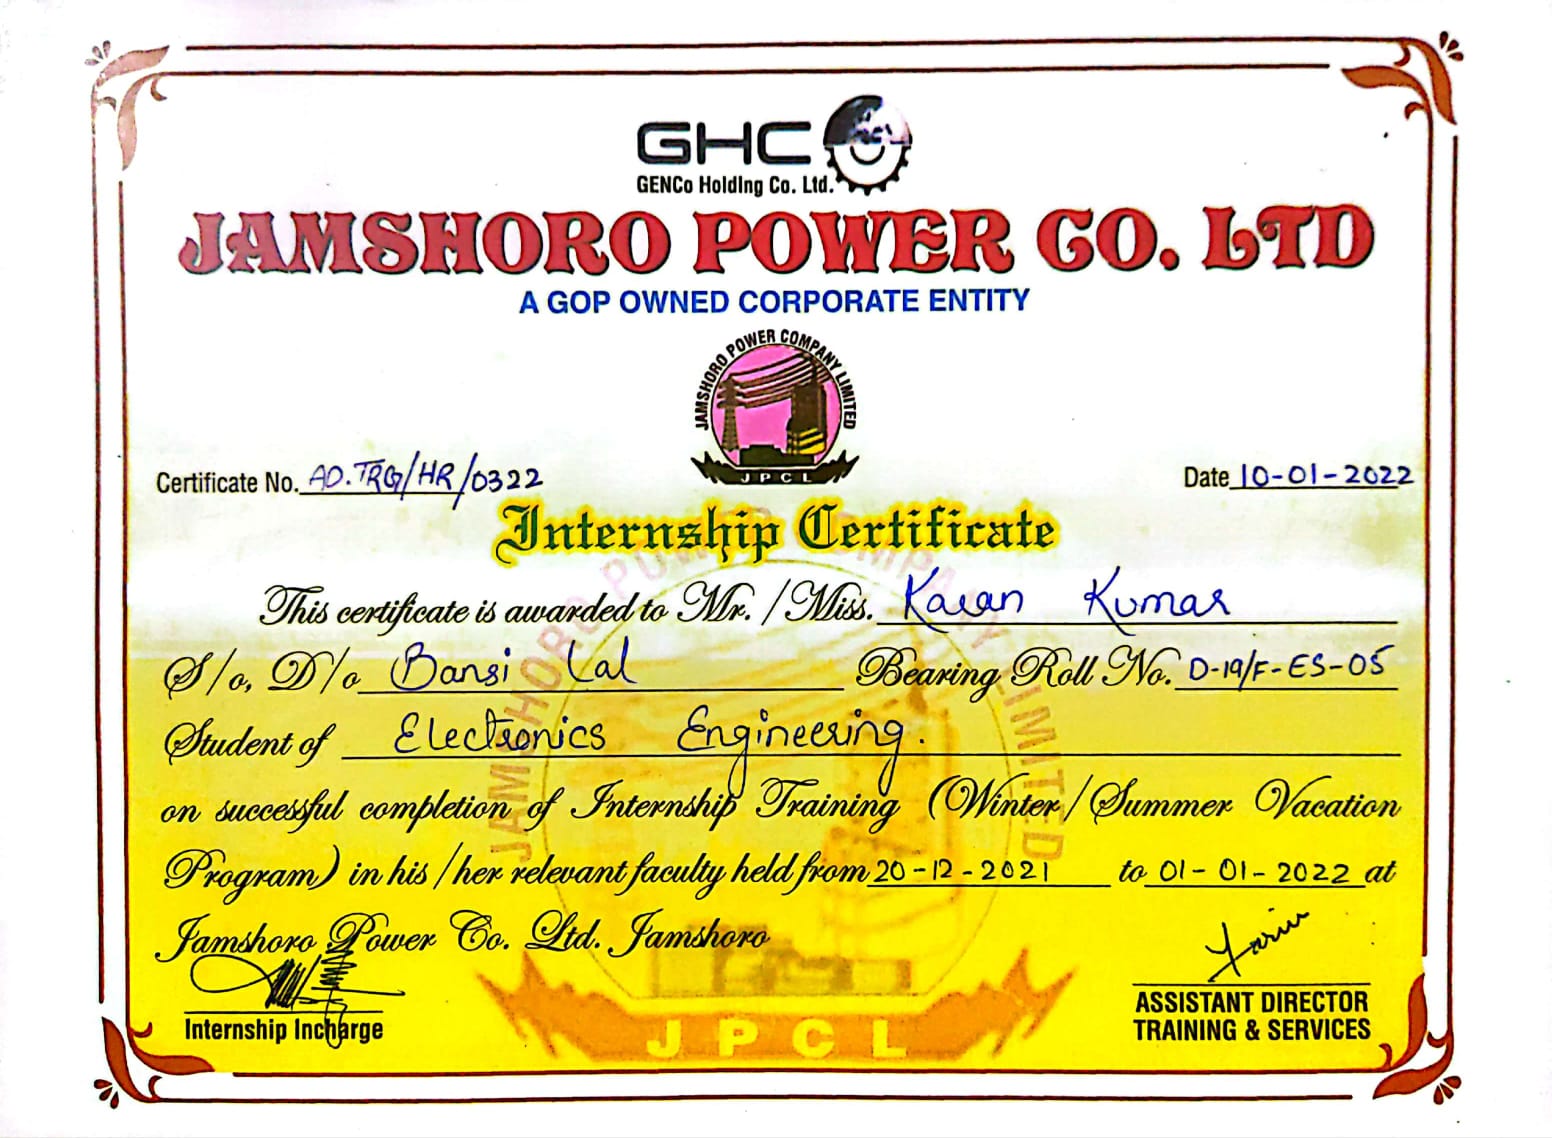 GHC
GENCo Holding Co. Ltd.
JAMSHORO POWER CO. LTD
A GOP OWNED CORPORATE ENTITY
JAMSHORO POWER COMPANY LIMITED
JPCL
Certificate No. AD.TRG/HR/0322 Date 10-01-2022
Internship Certificate
This certificate is awarded to Mr. /Miss. Karan Kumar
S/o, D/o Bansi Lal Bearing Roll No. D-19/F-ES-05
Student of Electronics Engineering.
on successful completion of Internship Training (Winter/Summer Vacation
Program) in his /her relevant faculty held from 20-12-2021 to 01-01-2022 at
Jamshoro Power Co. Ltd. Jamshoro
JAMSHORO POWER COMPANY LIMITED
JPCL
Internship Incharge
ASSISTANT DIRECTOR
TRAINING & SERVICES